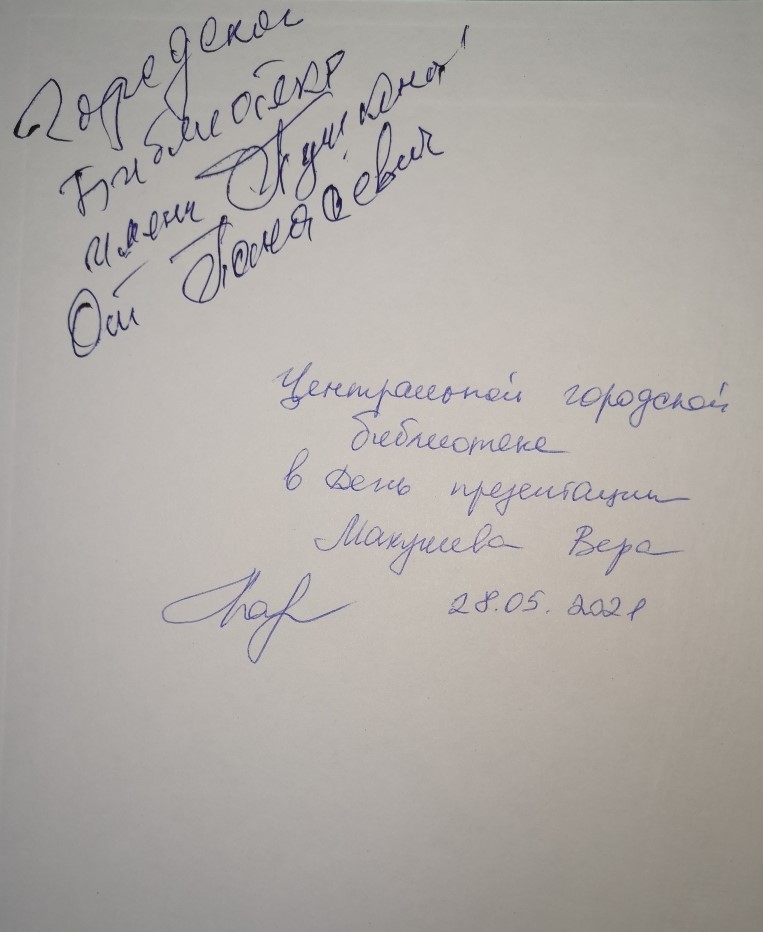 Городской
Библиотеке
имени Пушкина!
От Панасевич
Центральной городской
библиотеке
в День презентации
Макушева Вера
28.05.2021